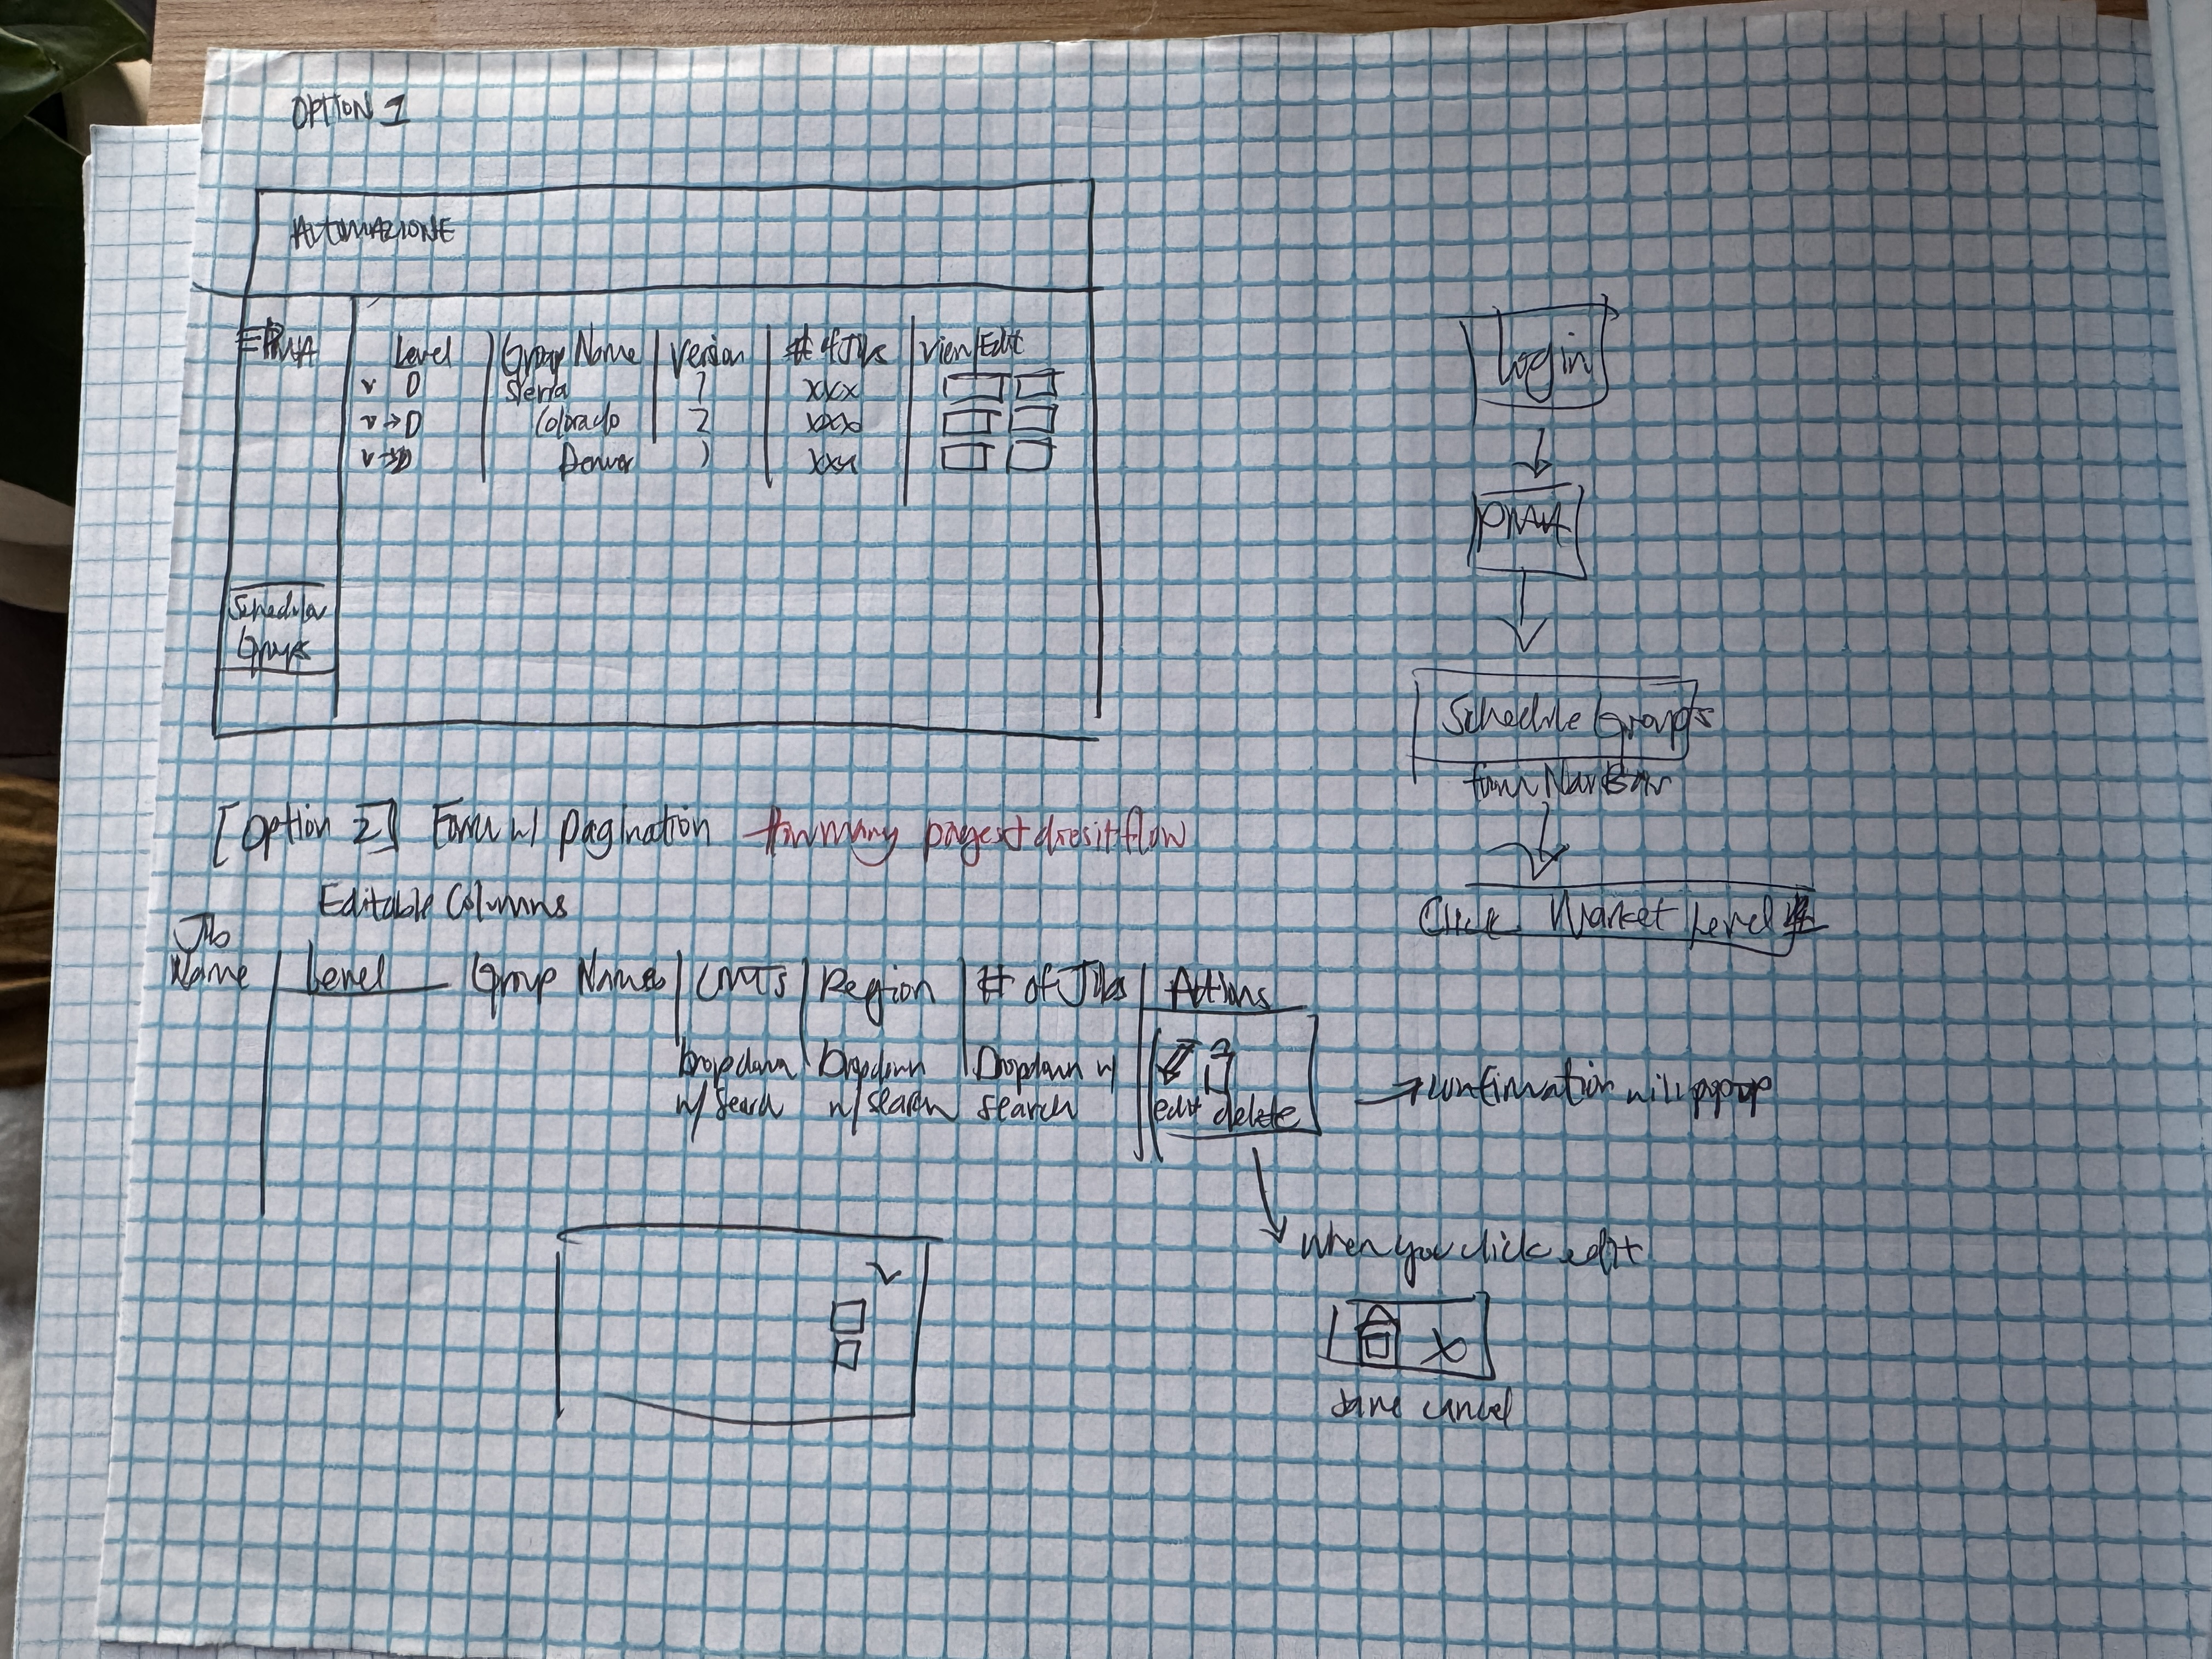 OPTION 1
AUTOMAZIONE
PMA
Level | Group Name | Version | # of Jobs | View/Edit
v D Sierra 1 xxx
v → D Colorado 2 xxx
v → D Denver ) xxx
Schedular
Groups
Login
PMA
Schedule Groups
from Nav Bar
Click Market Level
[Option 2] Form w/ pagination How many pages + does it flow
Editable Columns
Job
Name | Level Group Names | CMTS | Region | # of Jobs | Actions
Dropdown Dropdown Dropdown w/
w/ search w/ search search
edit delete
→ confirmation will popup
when you click edit
X
save cancel